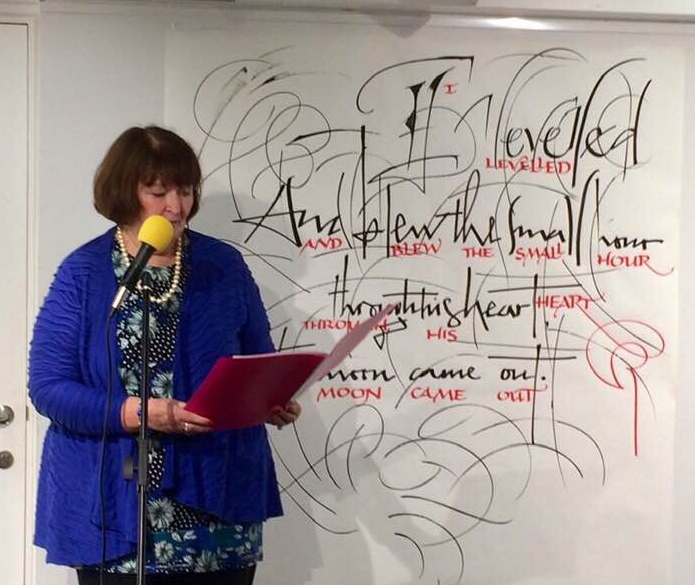 I
I levelled
LEVELLED
And blew the small hour
AND BLEW THE SMALL HOUR
through his heart.
THROUGH HIS HEART
moon came out.
MOON CAME OUT